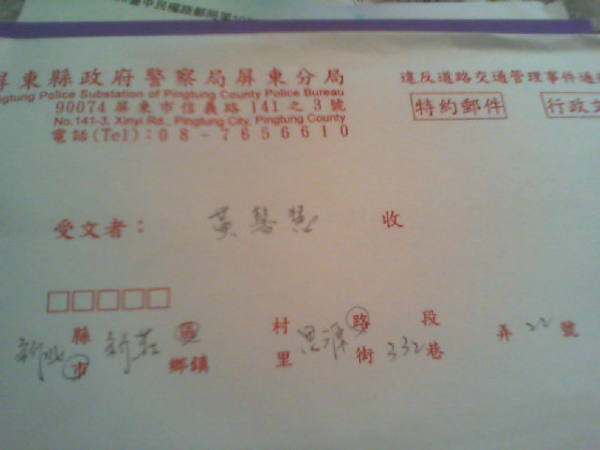 屏東縣政府警察局屏東分局
ngtung Police Substation of Pingtung County Police Bureau
90074 屏東市信義路 141 之 3 號
No.141-3, Xinyi Rd., Pingtung City, Pingtung County
電話(Tel):08-7656610
違反道路交通管理事件通
特約郵件
行政文
受文者: 黃馨慧 收
新北 縣市 新莊 區鄉鎮 村里 思源 路街 段 332 巷 弄 22 號